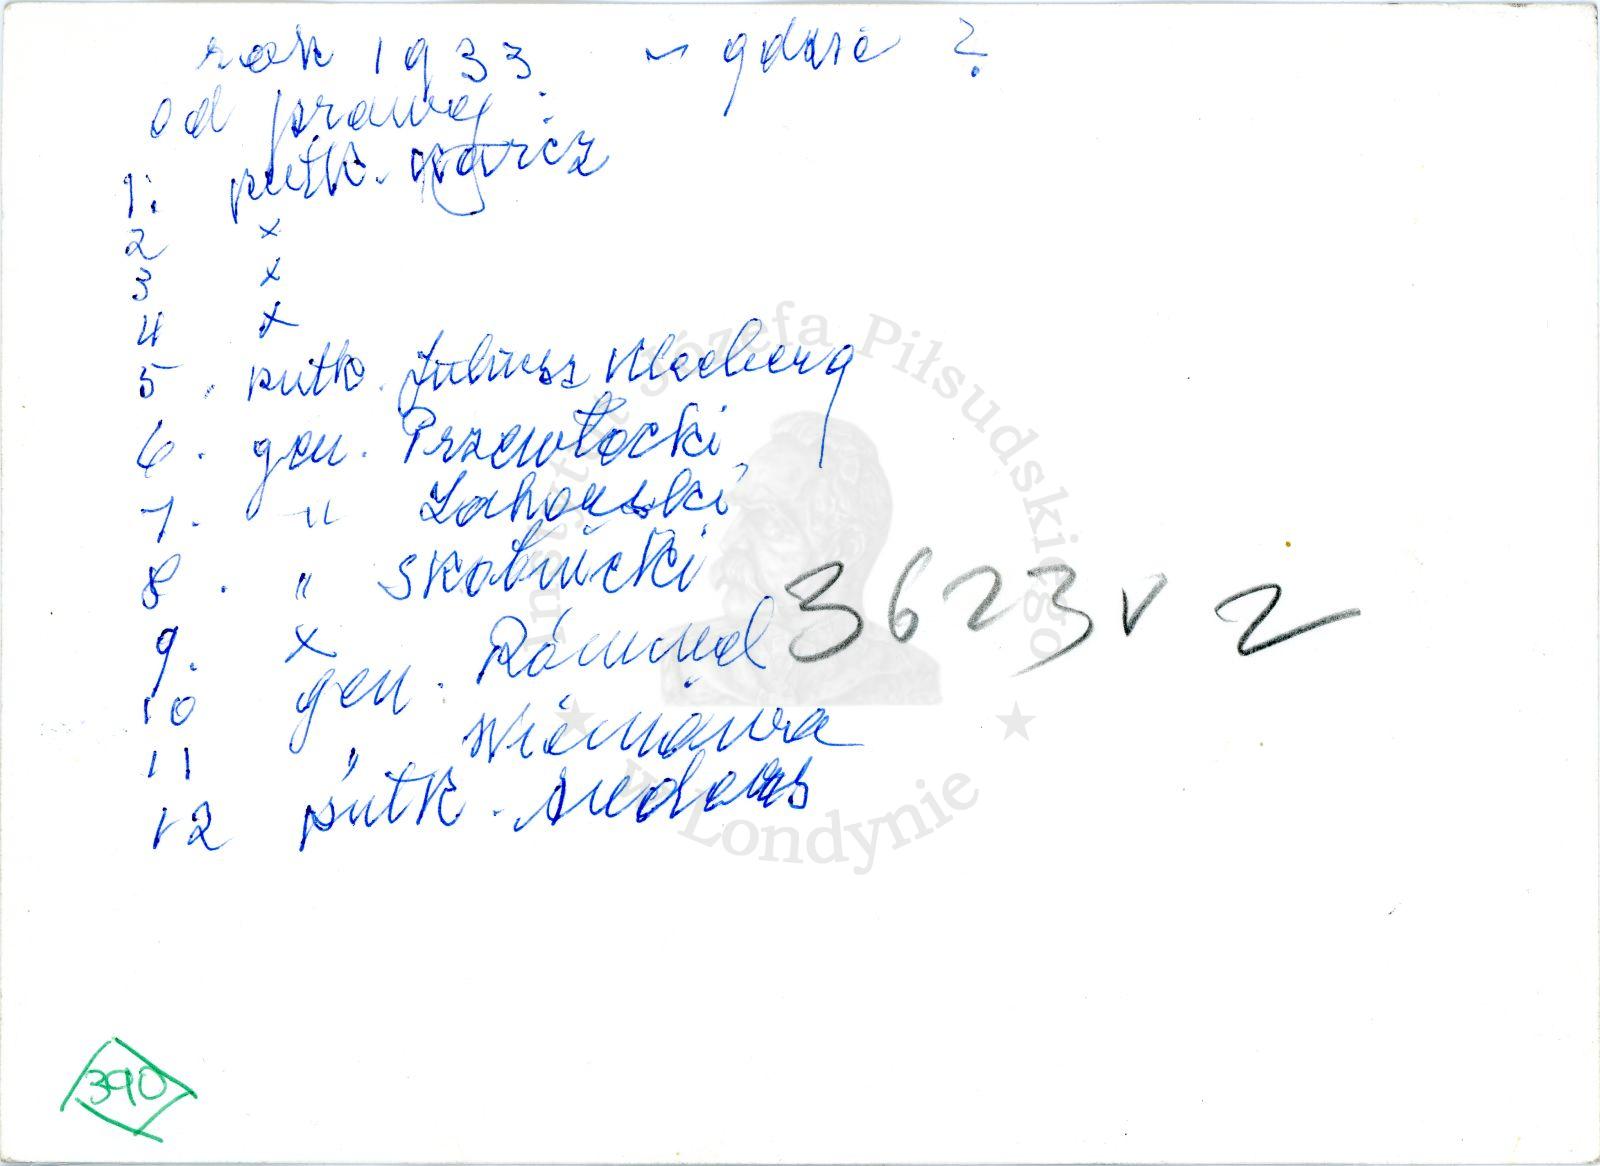 rok 1933 – gdzie ?
od prawej :
1. płk.
2 x
3 x
4 x
5. płk. Juliusz Kleeberg
6. gen. Przewłocki
7. " Zahorski
8. " Skotnicki
9. x
10 gen. Rómmel
11 " Wieniawa
12 płk.
3623 v 2
390
Instytut Józefa Piłsudskiego
w Londynie